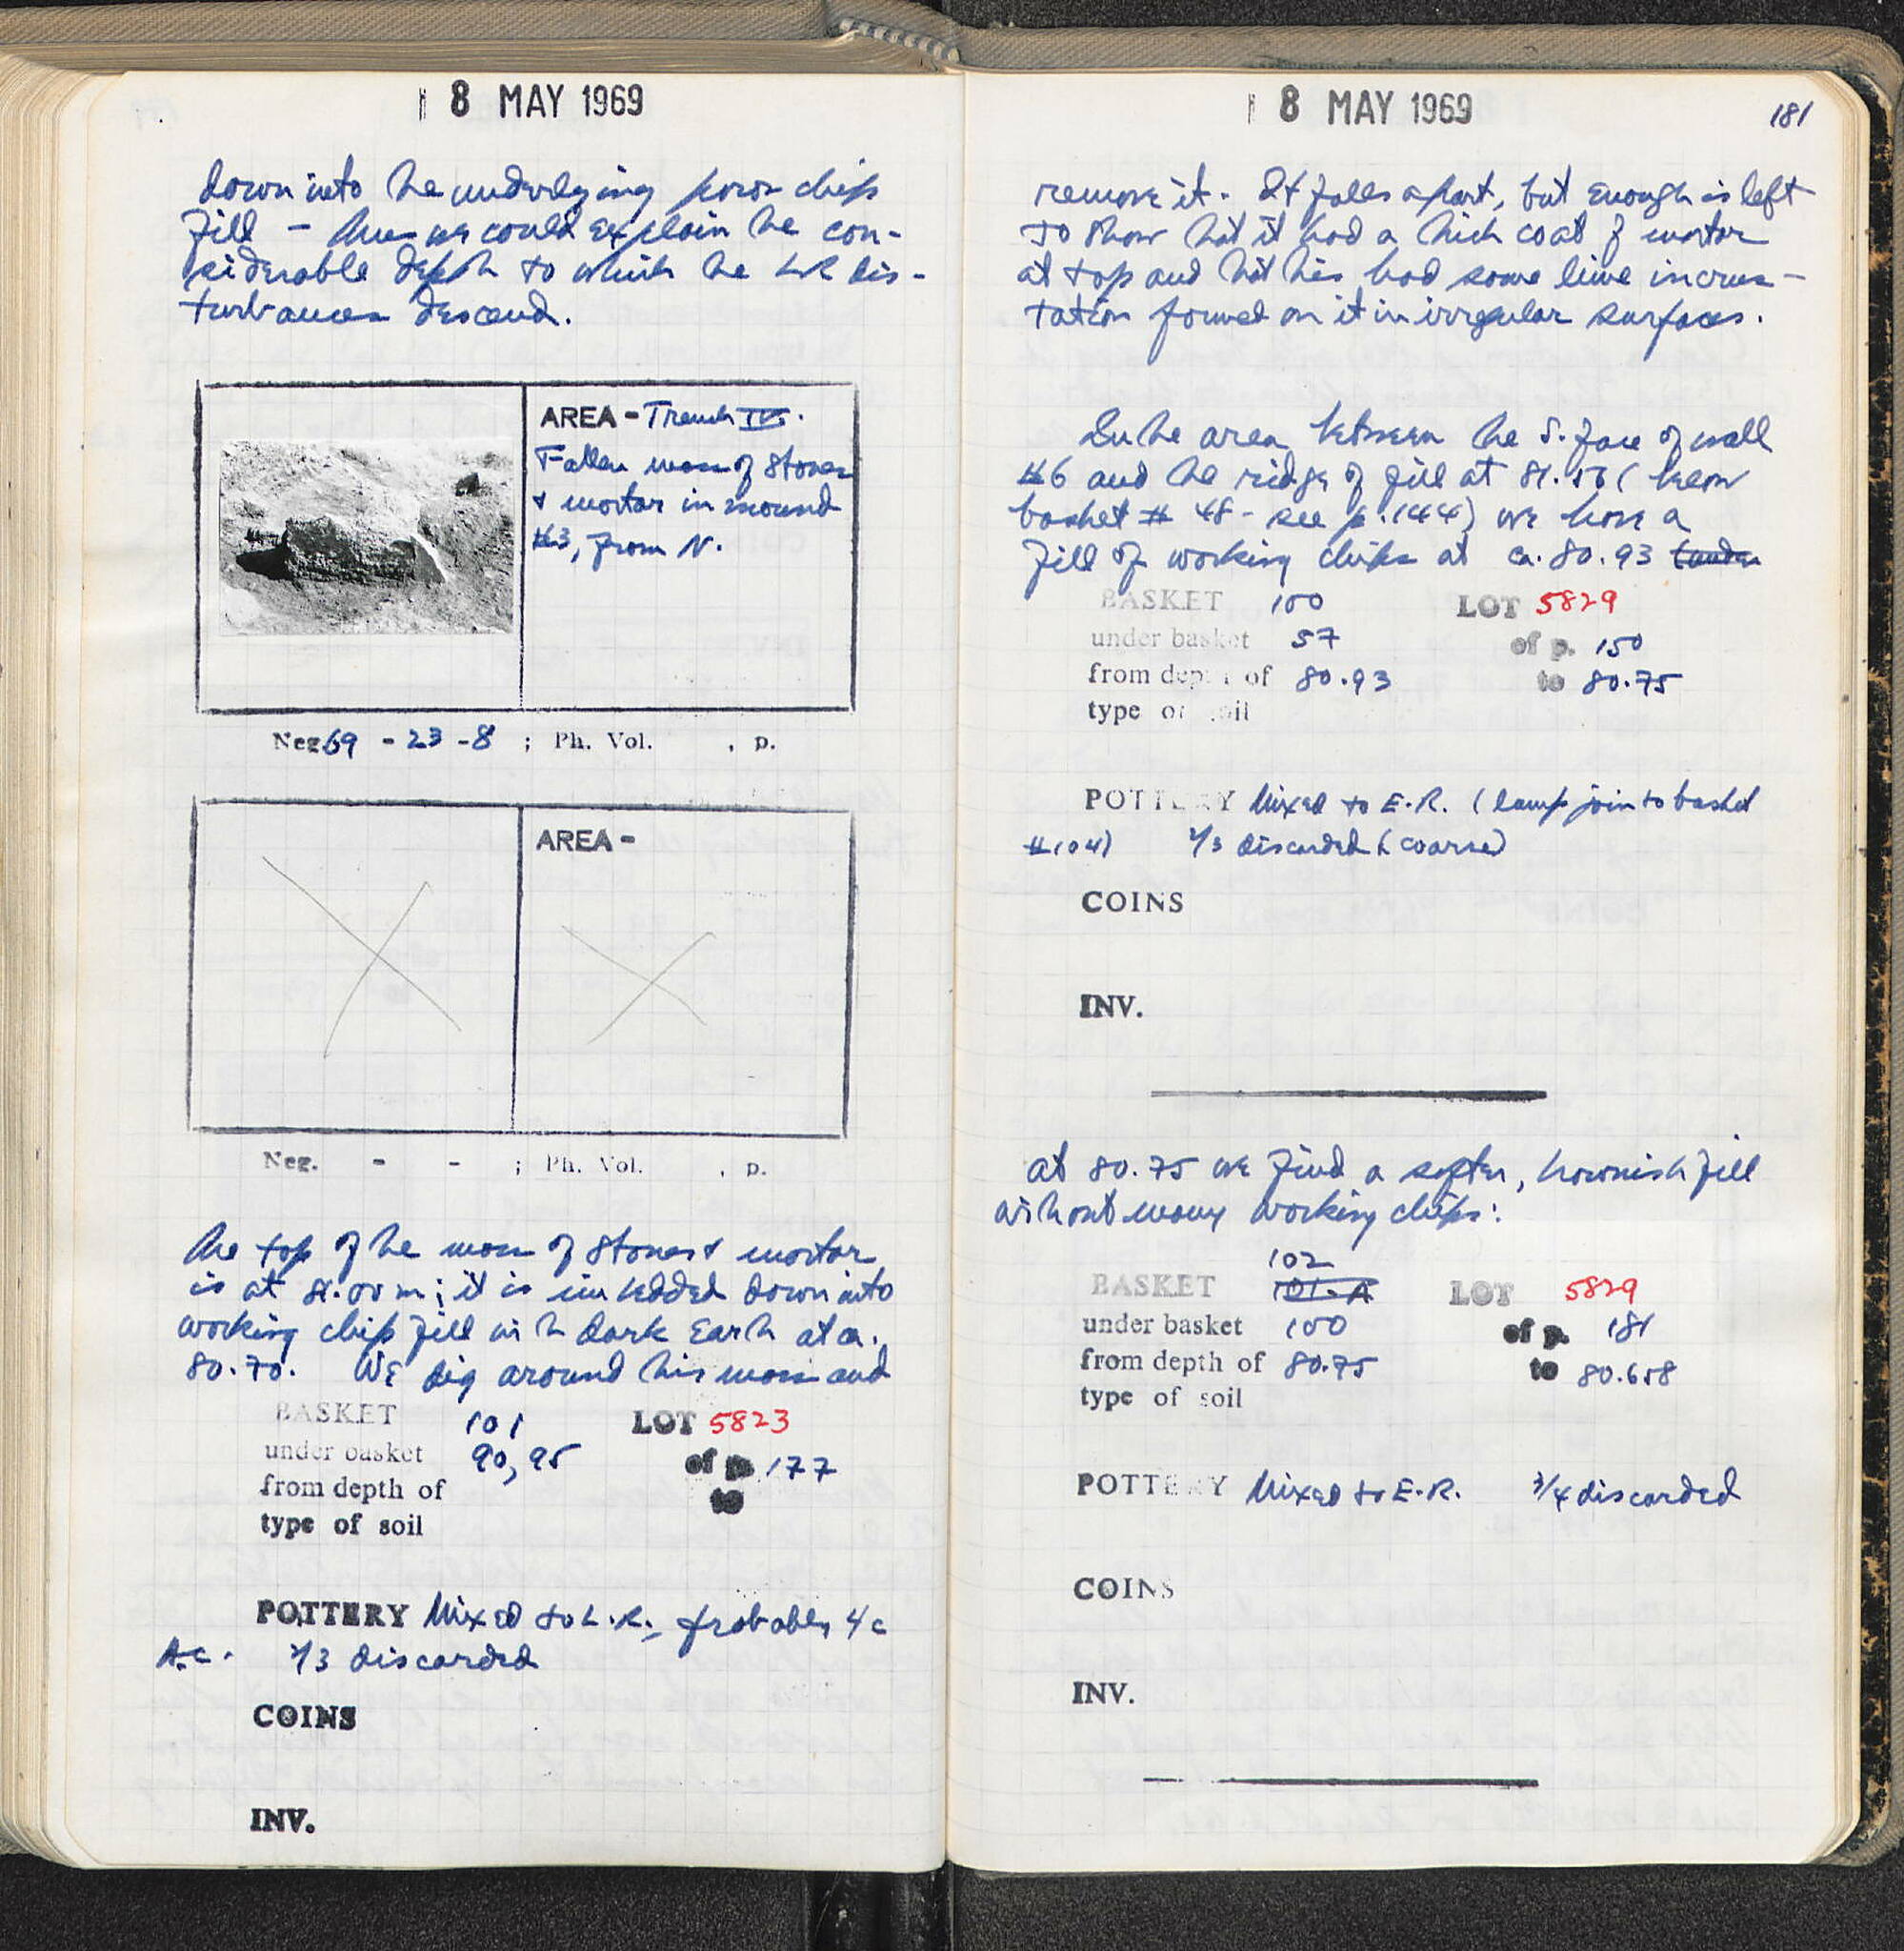 8 MAY 1969
down into the underlying poros chip
fill – thus we could explain the con-
siderable depth to which the LR dis-
turbances descend.
AREA - Trench IV.
Fallen mass of stones
& mortar in mound
#3, from N.
Neg. 69 - 23 - 8 ; Ph. Vol. , p.
AREA -
Neg. - - ; Ph. Vol. , p.
The top of the mass of stones & mortar
is at 81.00 m; it is imbedded down into
working chip fill with dark earth at ca.
80.70. We dig around this mass and
BASKET 101 LOT 5823
under basket 90, 95 of p. 177
from depth of to
type of soil
POTTERY Mixed to L.R., probably 4 c
A.C. 2/3 discarded
COINS
INV.
8 MAY 1969
181
remove it. It falls apart, but enough is left
to show that it had a thick coat of mortar
at top and that this had some lime incrus-
tation formed on it in irregular surfaces.
In the area between the S. face of wall
#6 and the ridge of fill at 81.56 (below
basket # 48 - see p. 144) we have a
fill of working chips at ca. 80.93 (under
BASKET 100 LOT 5829
under basket 57 of p. 150
from depth of 80.93 to 80.75
type of soil
POTTERY Mixed to E.R. (lamp join to basket
#104) 2/3 discarded (coarse)
COINS
INV.
at 80.75 we find a softer, brownish fill
without many working chips:
102
BASKET 101-A LOT 5829
under basket 100 of p. 181
from depth of 80.75 to 80.658
type of soil
POTTERY Mixed to E.R. 3/4 discarded
COINS
INV.